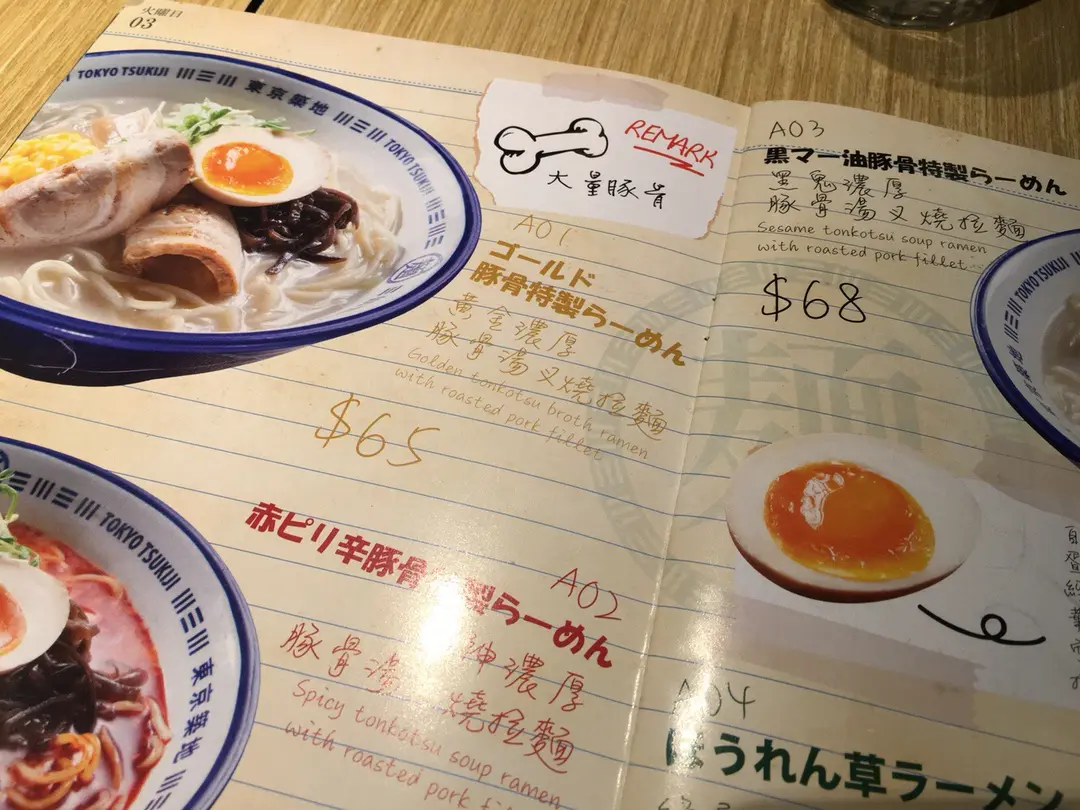 火曜日
03
TOKYO TSUKIJI 東京築地 TOKYO TSUKIJI
REMARK
大量豚骨
A01
ゴールド
豚骨特製らーめん
黃金濃厚
豚骨湯叉燒拉麵
Golden tonkotsu broth ramen
with roasted pork fillet
$65
赤ピリ辛豚骨製らーめん
A02
神濃厚
豚骨湯 燒拉麵
Spicy tonkotsu soup ramen
with roasted pork fillet
TOKYO TSUKIJI 東京築地
A03
黒マー油豚骨特製らーめん
黑鬼濃厚
豚骨湯叉燒拉麵
Sesame tonkotsu soup ramen
with roasted pork fillet
$68
TOKYO TSUKIJI
麺
A04
ほうれん草ラーメン